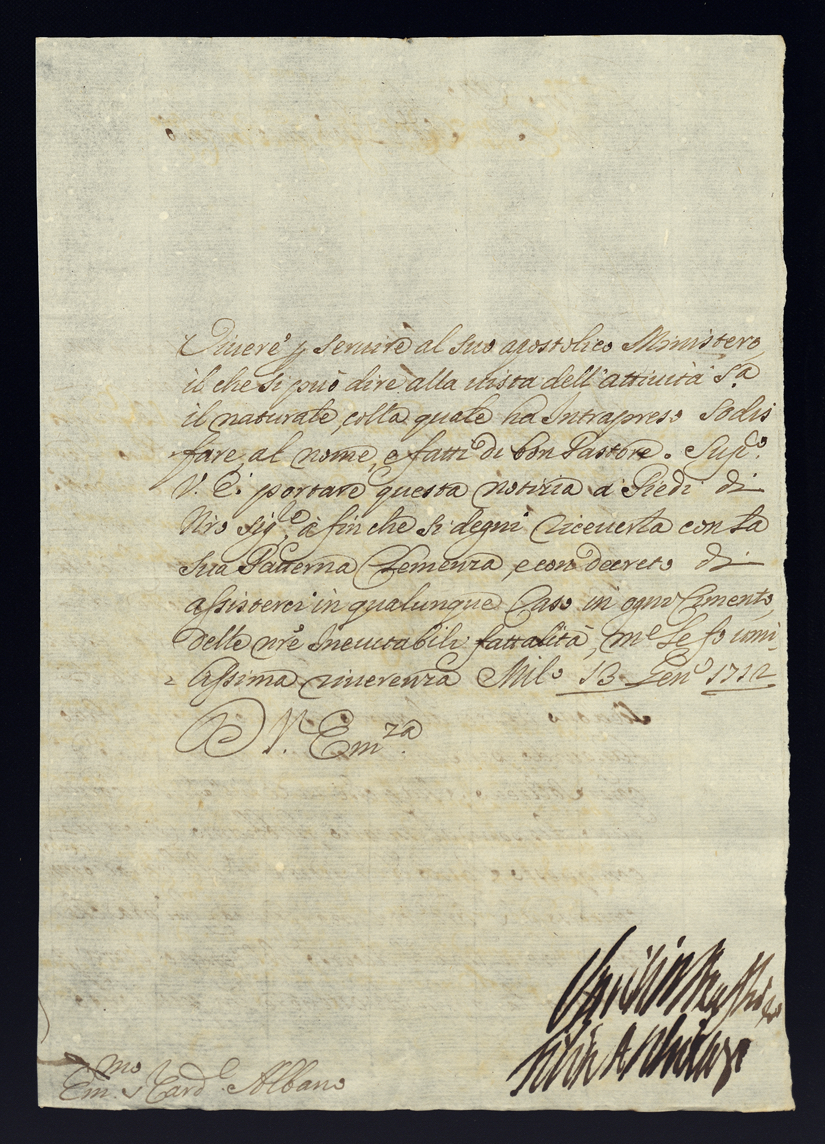 Viuere, e seruire al suo apostolico Ministero,
il che si può dire alla uista dell'attiuità S.a
il naturale, colla quale ha Intrapreso Sodis
fare, al nome, e fatti di bon Pastore. Supp.o
V. E. portare questa notizia a' Piedi di
Nro Sig.e, à fin che si degni riceuerla con la
Sua Paterna Clemenza, e con decreto di
assisterci in qualunque Caso in ogni Cimento
delle nre Ineuitabili fattalità, me Le fo umi-
lissima riuerenza Mil.o 13 Gen.o 1712
D V. Em.za
Em.mo S. Card.l Albano